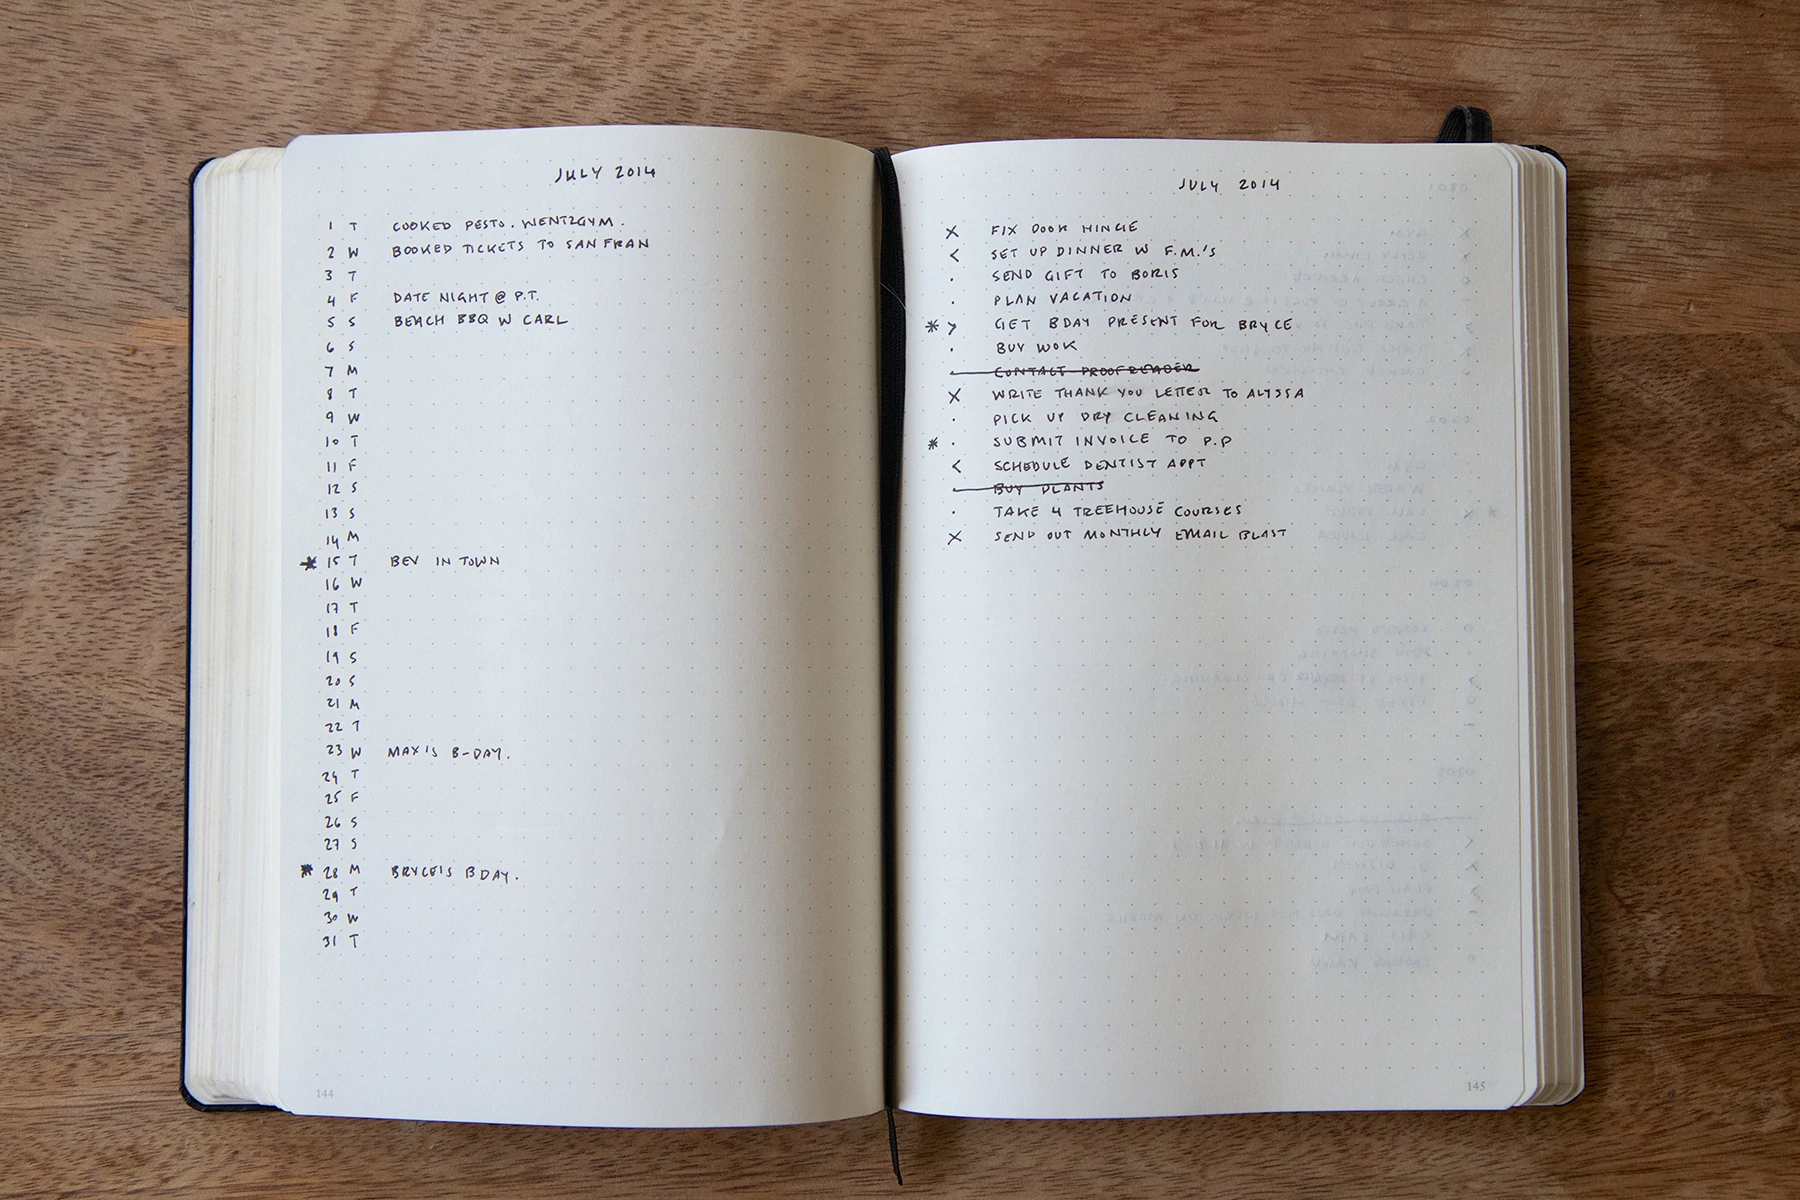 JULY 2014
1 T COOKED PESTO. WENT2GYM.
2 W BOOKED TICKETS TO SAN FRAN
3 T
4 F DATE NIGHT @ P.T.
5 S BEACH BBQ W CARL
6 S
7 M
8 T
9 W
10 T
11 F
12 S
13 S
14 M
* 15 T BEV IN TOWN
16 W
17 T
18 F
19 S
20 S
21 M
22 T
23 W MAX'S B-DAY.
24 T
25 F
26 S
27 S
* 28 M BRYCE'S BDAY.
29 T
30 W
31 T
144
JULY 2014
X FIX DOOR HINGE
< SET UP DINNER W F.M.'S
· SEND GIFT TO BORIS
· PLAN VACATION
* > GET BDAY PRESENT FOR BRYCE
· BUY WOK
· CONTACT PROOFREADER
X WRITE THANK YOU LETTER TO ALYSSA
· PICK UP DRY CLEANING
* · SUBMIT INVOICE TO P.P
< SCHEDULE DENTIST APPT
· BUY PLANTS
· TAKE 4 TREEHOUSE COURSES
X SEND OUT MONTHLY EMAIL BLAST
145